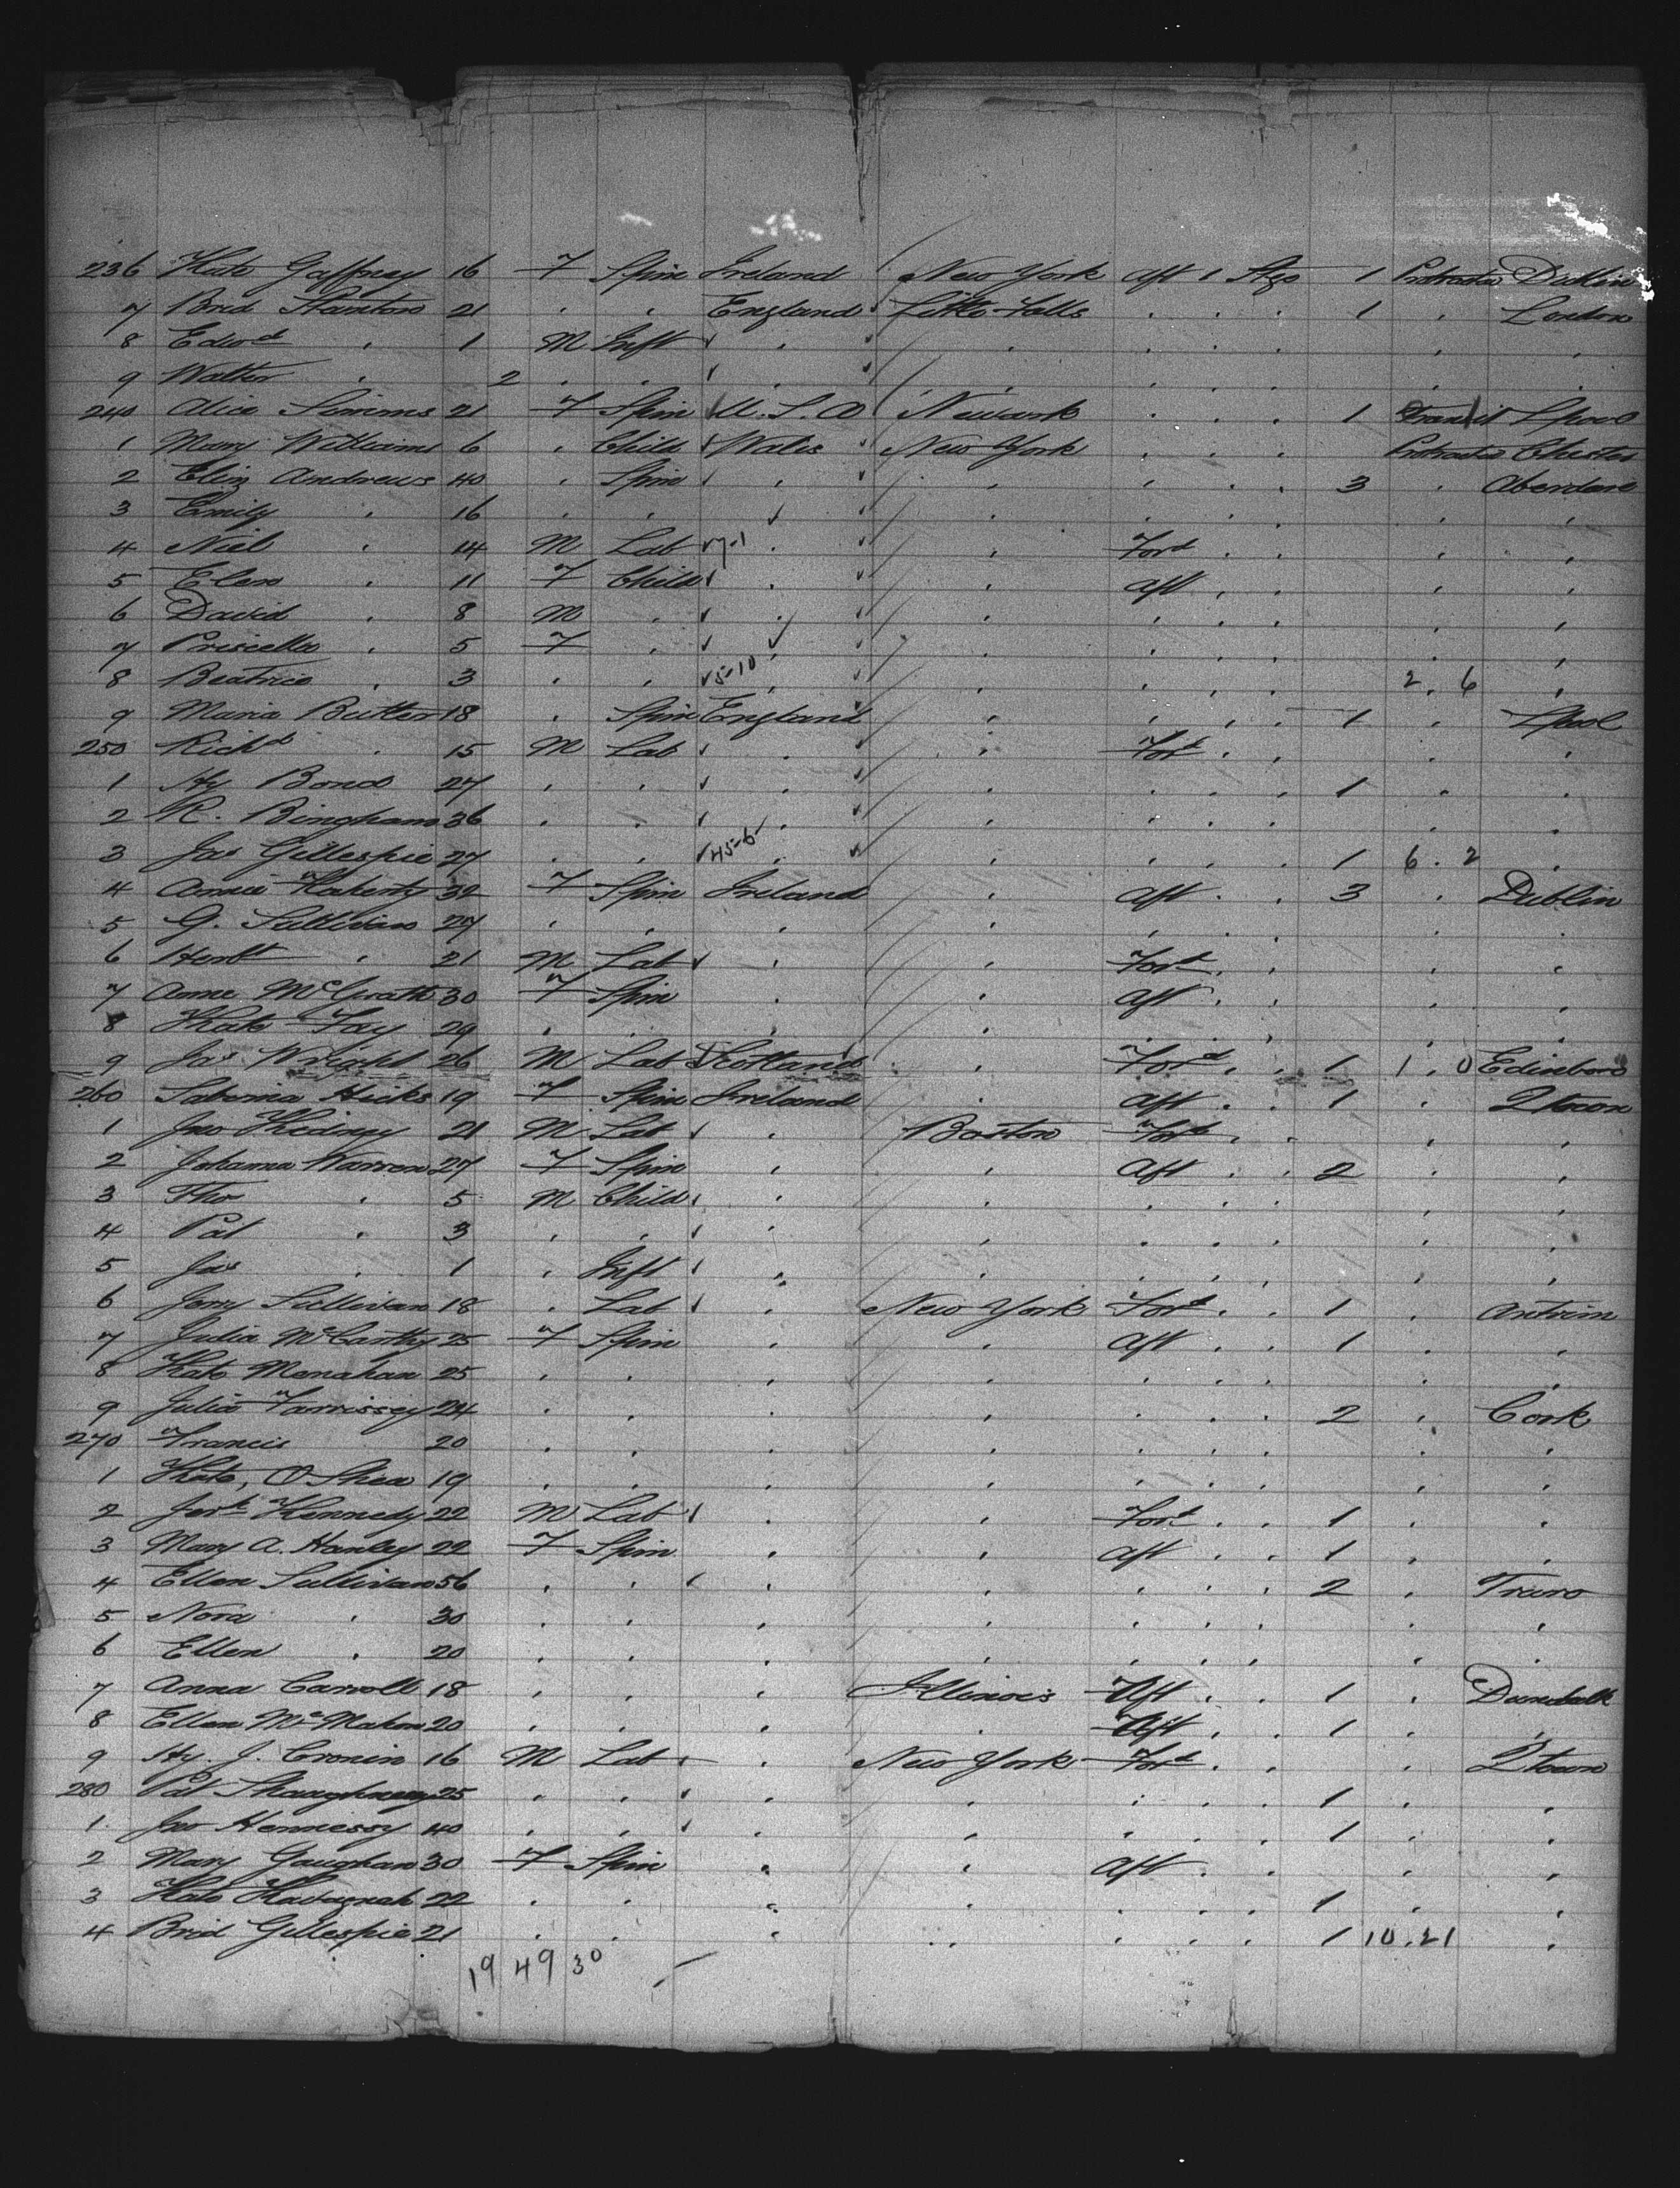 236 Kate Gaffney 16 F Spin Ireland New York Aft 1 Stge 1 Protracted Dublin
7 Brid Stanton 21 . . England Little Falls . . . 1 . London
8 Edwd . 1 M Inft . . . . . . .
9 Walter . 2 . . . . . . . . .
240 Alice Simms 21 F Spin U.S.A Newark . . . 1 Transit Lpool
1 Mary Williams 6 . Child Wales New York . . . Protracted Chester
2 Eliz Andrews 40 . Spin . . . . . 3 . Aberdare
3 Emily . 16 . . . . . . . .
4 Niel . 14 M Lab 7-1 . . Ford . . . .
5 Elen . 11 F Child . . Aft . . . .
6 David . 8 M . . . . . . . .
7 Priscella . 5 F . . . . . . . .
8 Beatrice . 3 . . 5-10 . . . . . 2 . 6 .
9 Maria Butter 18 . Spin England . . . . 1 . Lpool
250 Richd . 15 M Lab . . Ford . . . .
1 Hy Bond 27 . . . . . . . 1 . .
2 R. Bingham 36 . . . . . . . . .
3 Jas Gillespie 27 . . 45-6 . . . . . 1 6 . 2 .
4 Annie Flaherty 32 F Spin Ireland . Aft . . 3 . Dublin
5 G. Sullivan 27 . . . . . . . . .
6 Herbt . 21 M Lab . . Ford . . . .
7 Anne McGrath 30 F Spin . . Aft . . . .
8 Kate Fay 29 . . . . . . . . .
9 Jas Wright 26 M Lab Scotland . Ford . . 1 1 . 0 Edinboro
260 Sabrina Hicks 19 F Spin Ireland . Aft . . 1 . Qtown
1 Jno Kidney 21 M Lab . Boston Ford . . . .
2 Johanna Warren 27 F Spin . . Aft . . 2 . .
3 Tho . 5 M Child . . . . . . .
4 Pat . 3 . . . . . . . . .
5 Jas . 1 . Inft . . . . . . .
6 Jerry Sullivan 18 . Lab . New York Ford . . 1 . Antrim
7 Julia McCarthy 25 F Spin . . Aft . . 1 . .
8 Kate Monahan 25 . . . . . . . . .
9 Julia Farrissey 24 . . . . . . . 2 . Cork
270 Francis 20 . . . . . . . . .
1 Kate, O Shea 19 . . . . . . . . .
2 Jerh Kennedy 22 M Lab . . Ford . . 1 . .
3 Mary A. Hanley 22 F Spin . . Aft . . 1 . .
4 Ellen Sullivan 56 . . . . . . . 2 . Truro
5 Nora . 30 . . . . . . . . .
6 Ellen . 20 . . . . . . . . .
7 Anna Carroll 18 . . . Illinois Aft . . 1 . Dundalk
8 Ellen McMahon 20 . . . . Aft . . 1 . .
9 Hy. J. Cronin 16 M Lab . New York Ford . . . Qtown
280 Pat Shaughnessy 25 . . . . . . . 1 . .
1 Jno Hennessy 40 . . . . . . . 1 . .
2 Mary Gaughan 30 F Spin . . Aft . . . .
3 Kate Kavagnah 22 . . . . . . . 1 . .
4 Brid Gillespie 21 . . . . . . . 1 10.21 .
19 49 30